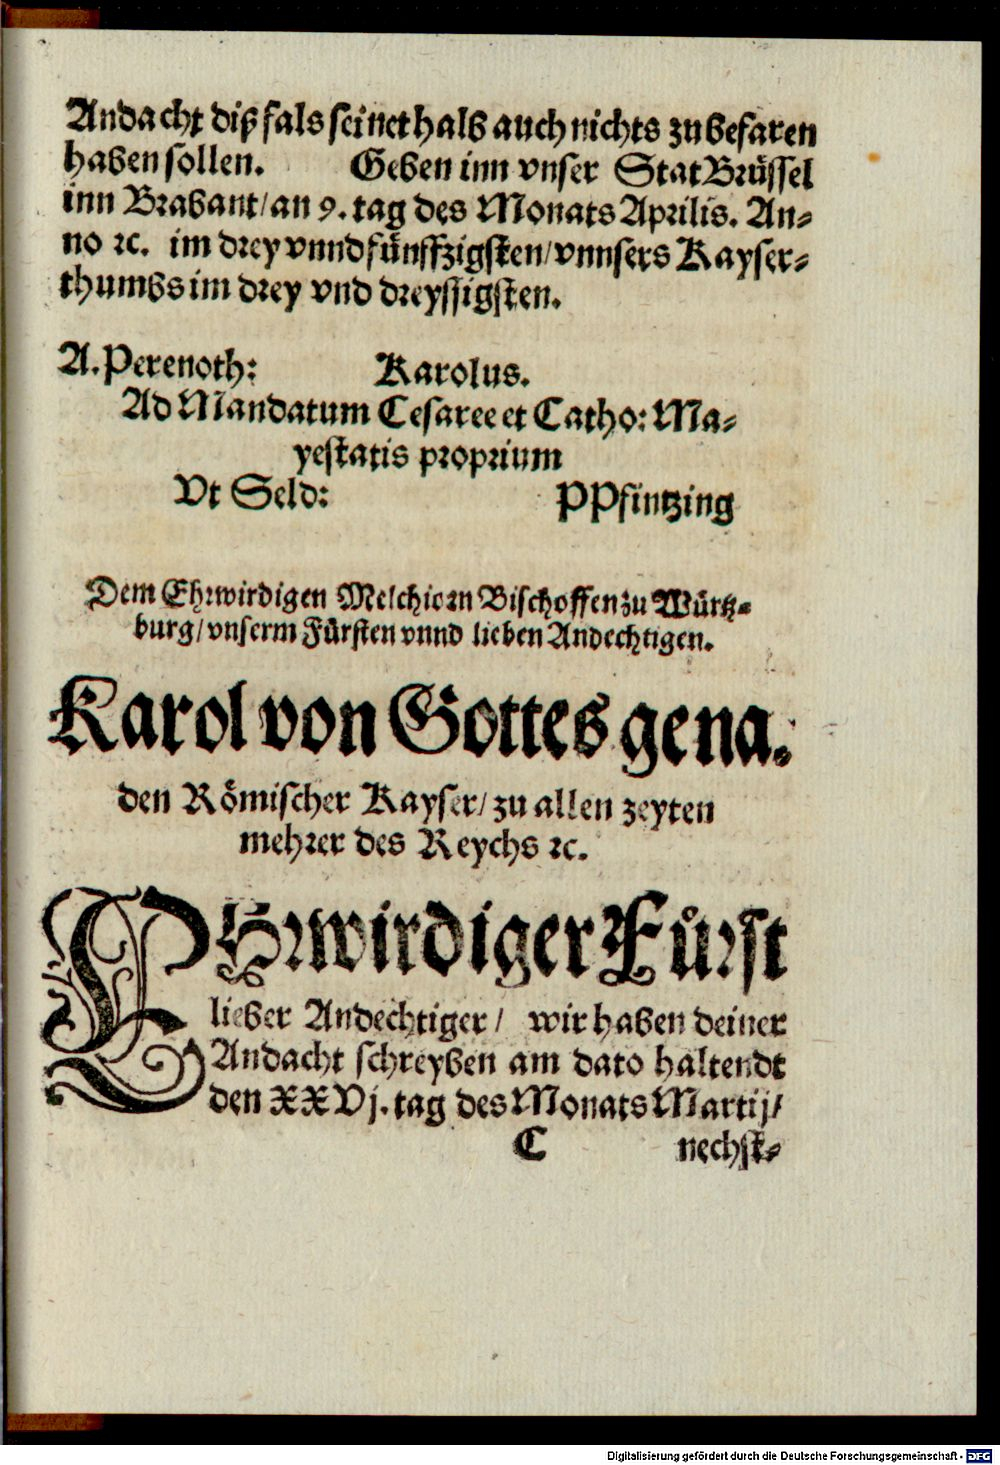 Andacht diß fals seinethalb auch nichts zu befaren
haben sollen. Geben inn vnser Stat Brüssel
inn Brabant/ an 9. tag des Monats Aprilis. An⸗
no ꝛc. im drey vnnd fünffzigsten/ vnnsers Kayser⸗
thumbs im drey vnd dreyssigsten.
A. Perenoth: Karolus.
Ad Mandatum Cesaree et Catho: Ma⸗
yestatis proprium
Vt Seld: PPfintzing
Dem Ehrwirdigen Melchiorn Bischoffen zu Würtz⸗
burg/ vnserm Fürsten vnnd lieben Andechtigen.
Karol von Gottes gena⸗
den Römischer Kayser/ zu allen zeyten
mehrer des Reychs ꝛc.
EHrwirdiger Fürst
lieber Andechtiger/ wir haben deiner
Andacht schreyben am dato haltendt
den XXVj. tag des Monats Martij/
C nechst⸗
Digitalisierung gefördert durch die Deutsche Forschungsgemeinschaft - DFG